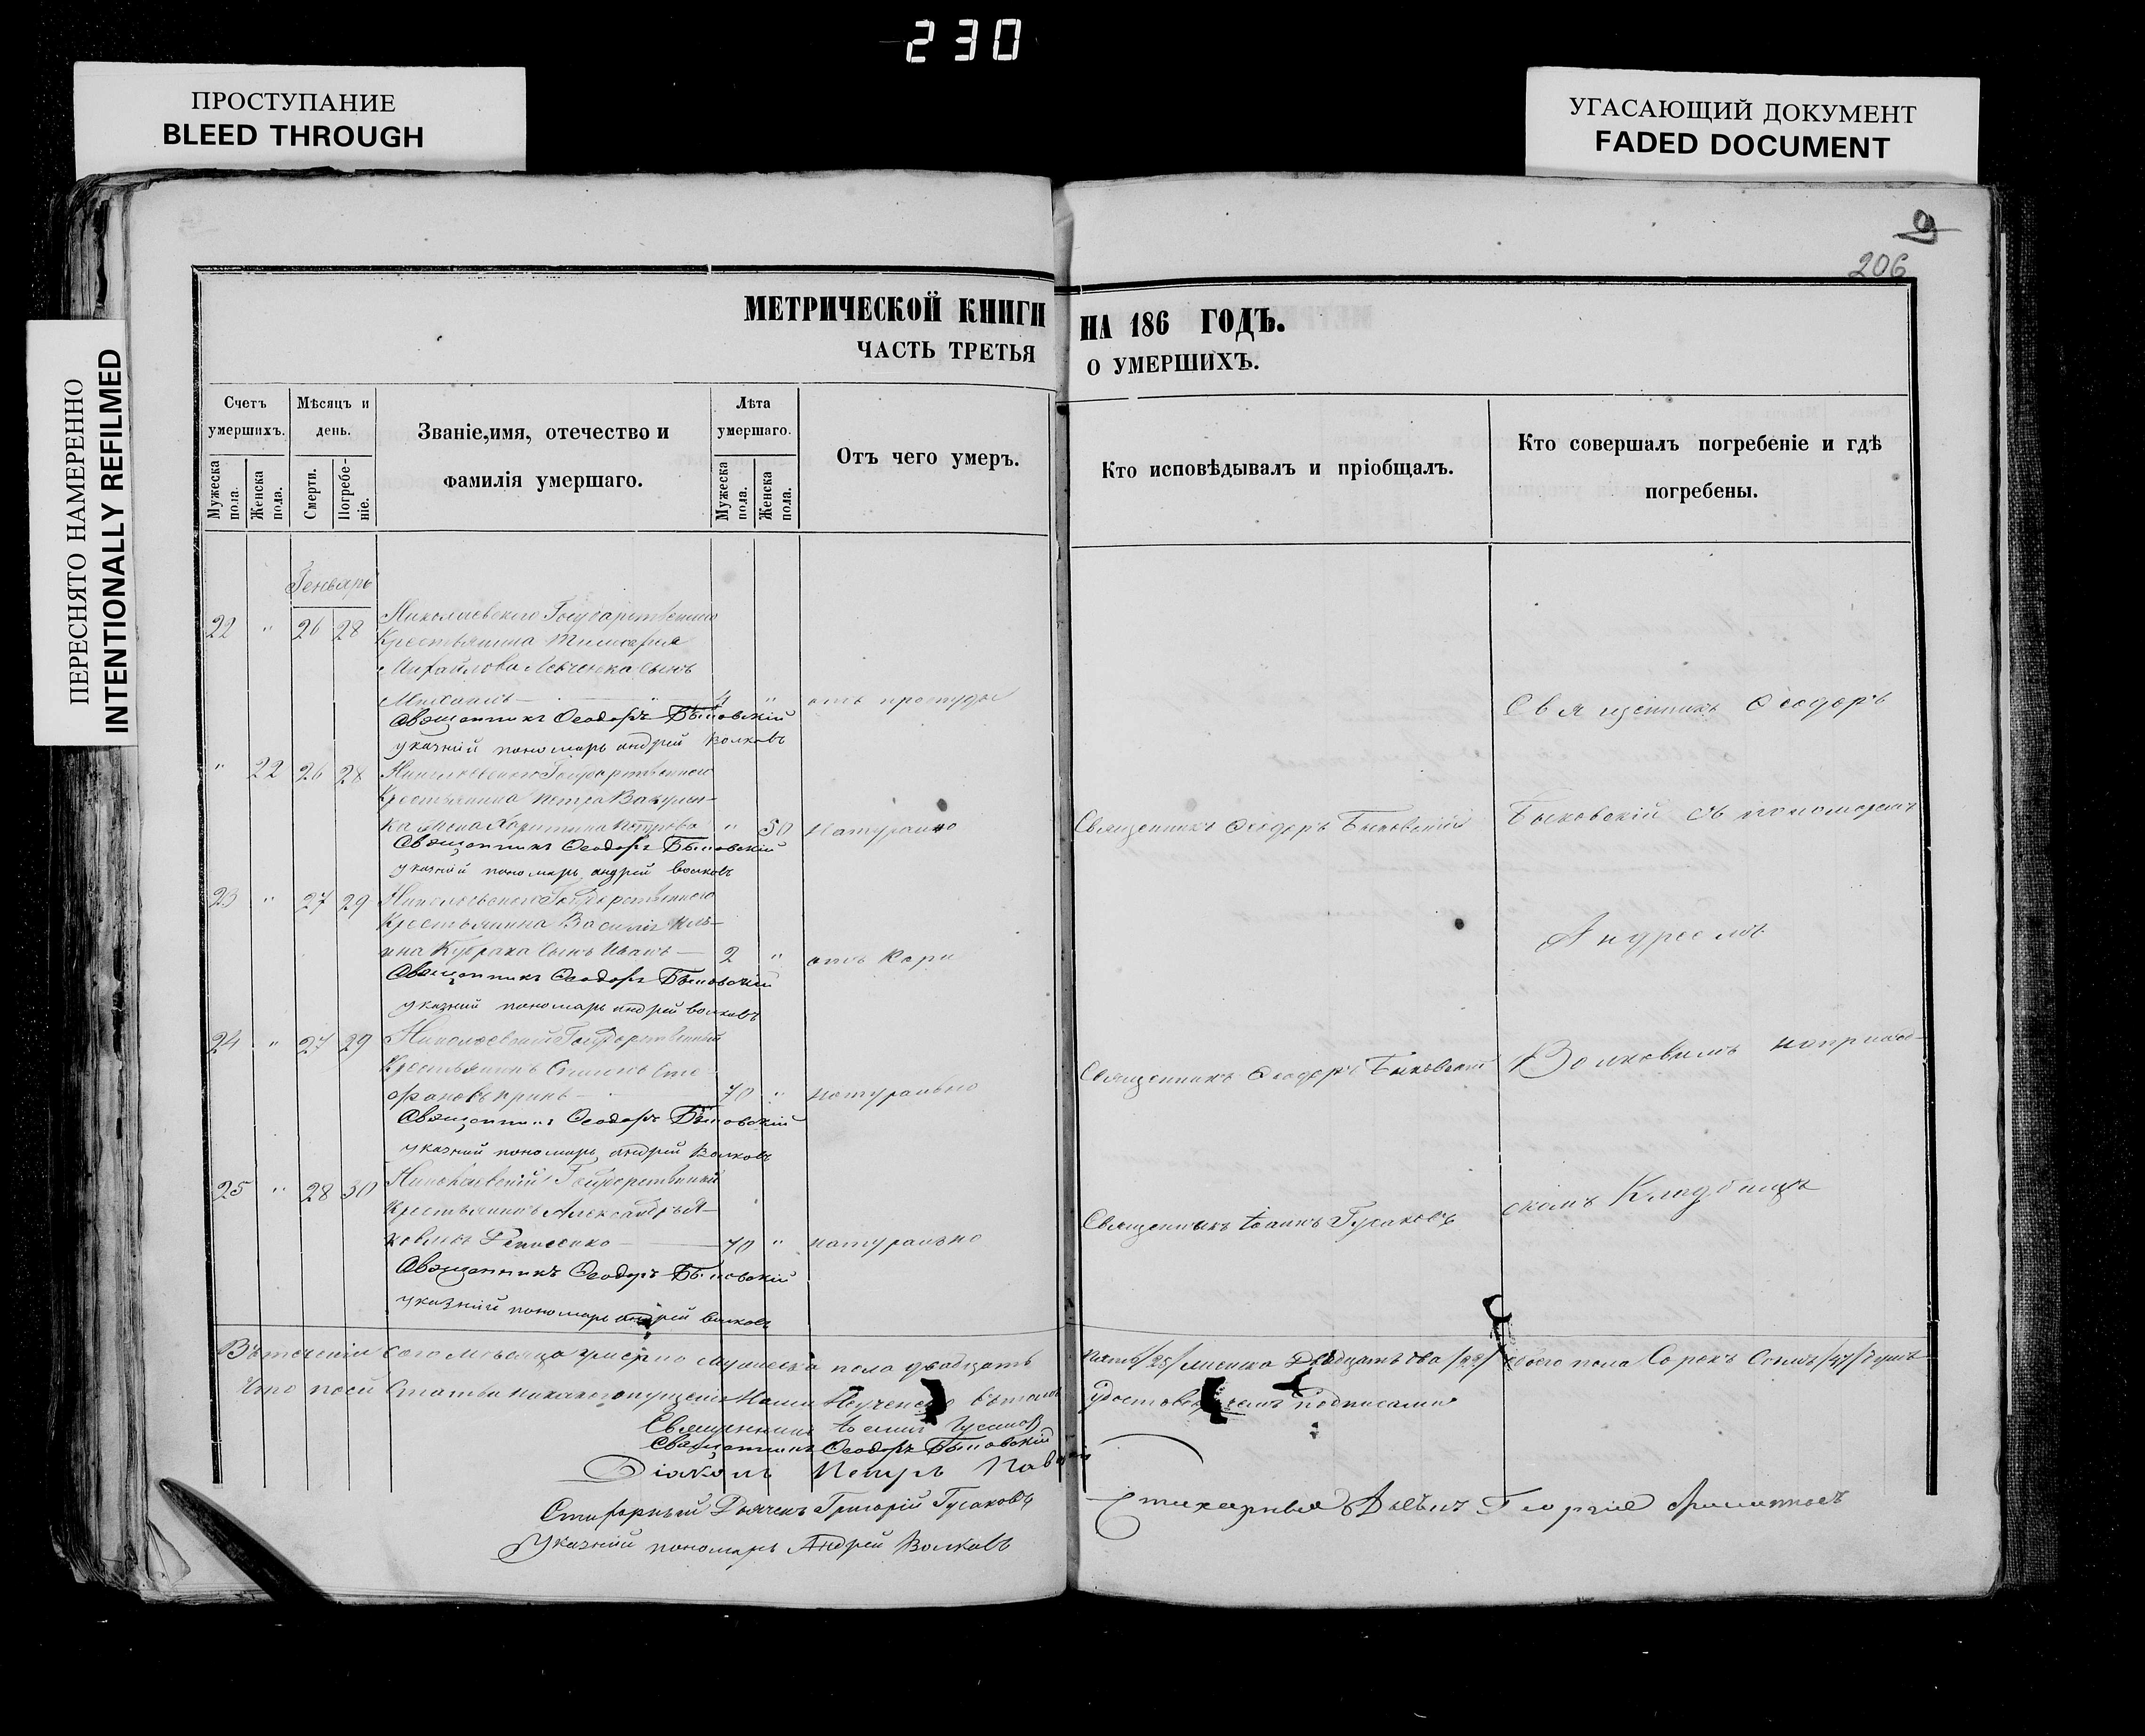 230
ПРОСТУПАНИЕ
BLEED THROUGH
УГАСАЮЩИЙ ДОКУМЕНТ
FADED DOCUMENT
ПЕРЕСНЯТО НАМЕРЕННО
INTENTIONALLY REFILMED
9
206
МЕТРИЧЕСКОЙ КНИГИ НА 186 ГОДЪ.
ЧАСТЬ ТРЕТЬЯ О УМЕРШИХЪ.
Счетъ умершихъ.
Мужеска пола.
Женска пола.
Мѣсяцъ и день.
Смерти.
Погребе-
ніе.
Званіе, имя, отечество и
фамилія умершаго.
Лѣта умершаго.
Мужеска пола.
Женска пола.
Отъ чего умеръ.
Кто исповѣдывалъ и пріобщалъ.
Кто совершалъ погребеніе и гдѣ
погребены.
Генварь
22 " 26 28 Николаевского Государственного
Крестьянина Тимофея
Михайлова Левченка сынъ
Михаилъ 4 " отъ простуды
Священникъ Ѳеодоръ Быковскій
указный пономарь андрей Волковъ
" 22 26 28 Николаевского Государственного
Крестьянина Петра
жена Харитина Петрова " 50 Натурально
Священникъ Ѳеодоръ Быковскій
Священникъ Ѳеодоръ Быковскій
указный пономарь андрей волковъ
23 " 27 29 Николаевского Государственного
Крестьянина Василія Иль-
ина сынъ Иванъ 2 " отъ Кори
Священникъ Ѳеодоръ Быковскій
указный пономарь андрей волковъ
24 " 27 29 Николаевский Государственный
Крестьянинъ Сте-
фановъ 70 " натурально
Священникъ Ѳеодоръ Быковский
Священникъ Ѳеодоръ Быковскій
указный пономарь андрей Волковъ
25 " 28 30 Николаевский Государственный
Крестьянинъ Александръ Я-
ковлевъ 70 " натурально
Священникъ Іоаннъ Гусаковъ
Священникъ Ѳеодоръ Быковскій
указный пономарь андрей волковъ
Священникъ Ѳеодоръ
Быковскій съ пономаремъ
Андреемъ
Волковымъ наприход-
скомъ Кладбищѣ
Въ теченіи сего мѣсяца умерло мужеска пола двадцать пять /25/ женска Двадцать два /22/ обоего пола Сорокъ Семь /47/ душъ
Что въ сей Статьи никакого опущенія подписами
Священникъ Іоаннъ Гусаковъ
Священникъ Ѳеодоръ Быковскій
Діаконъ Петръ
Стихарный Дьячекъ Григорій Гусаковъ
Стихарный Георгіе
Указний пономарь Андрей Волковъ